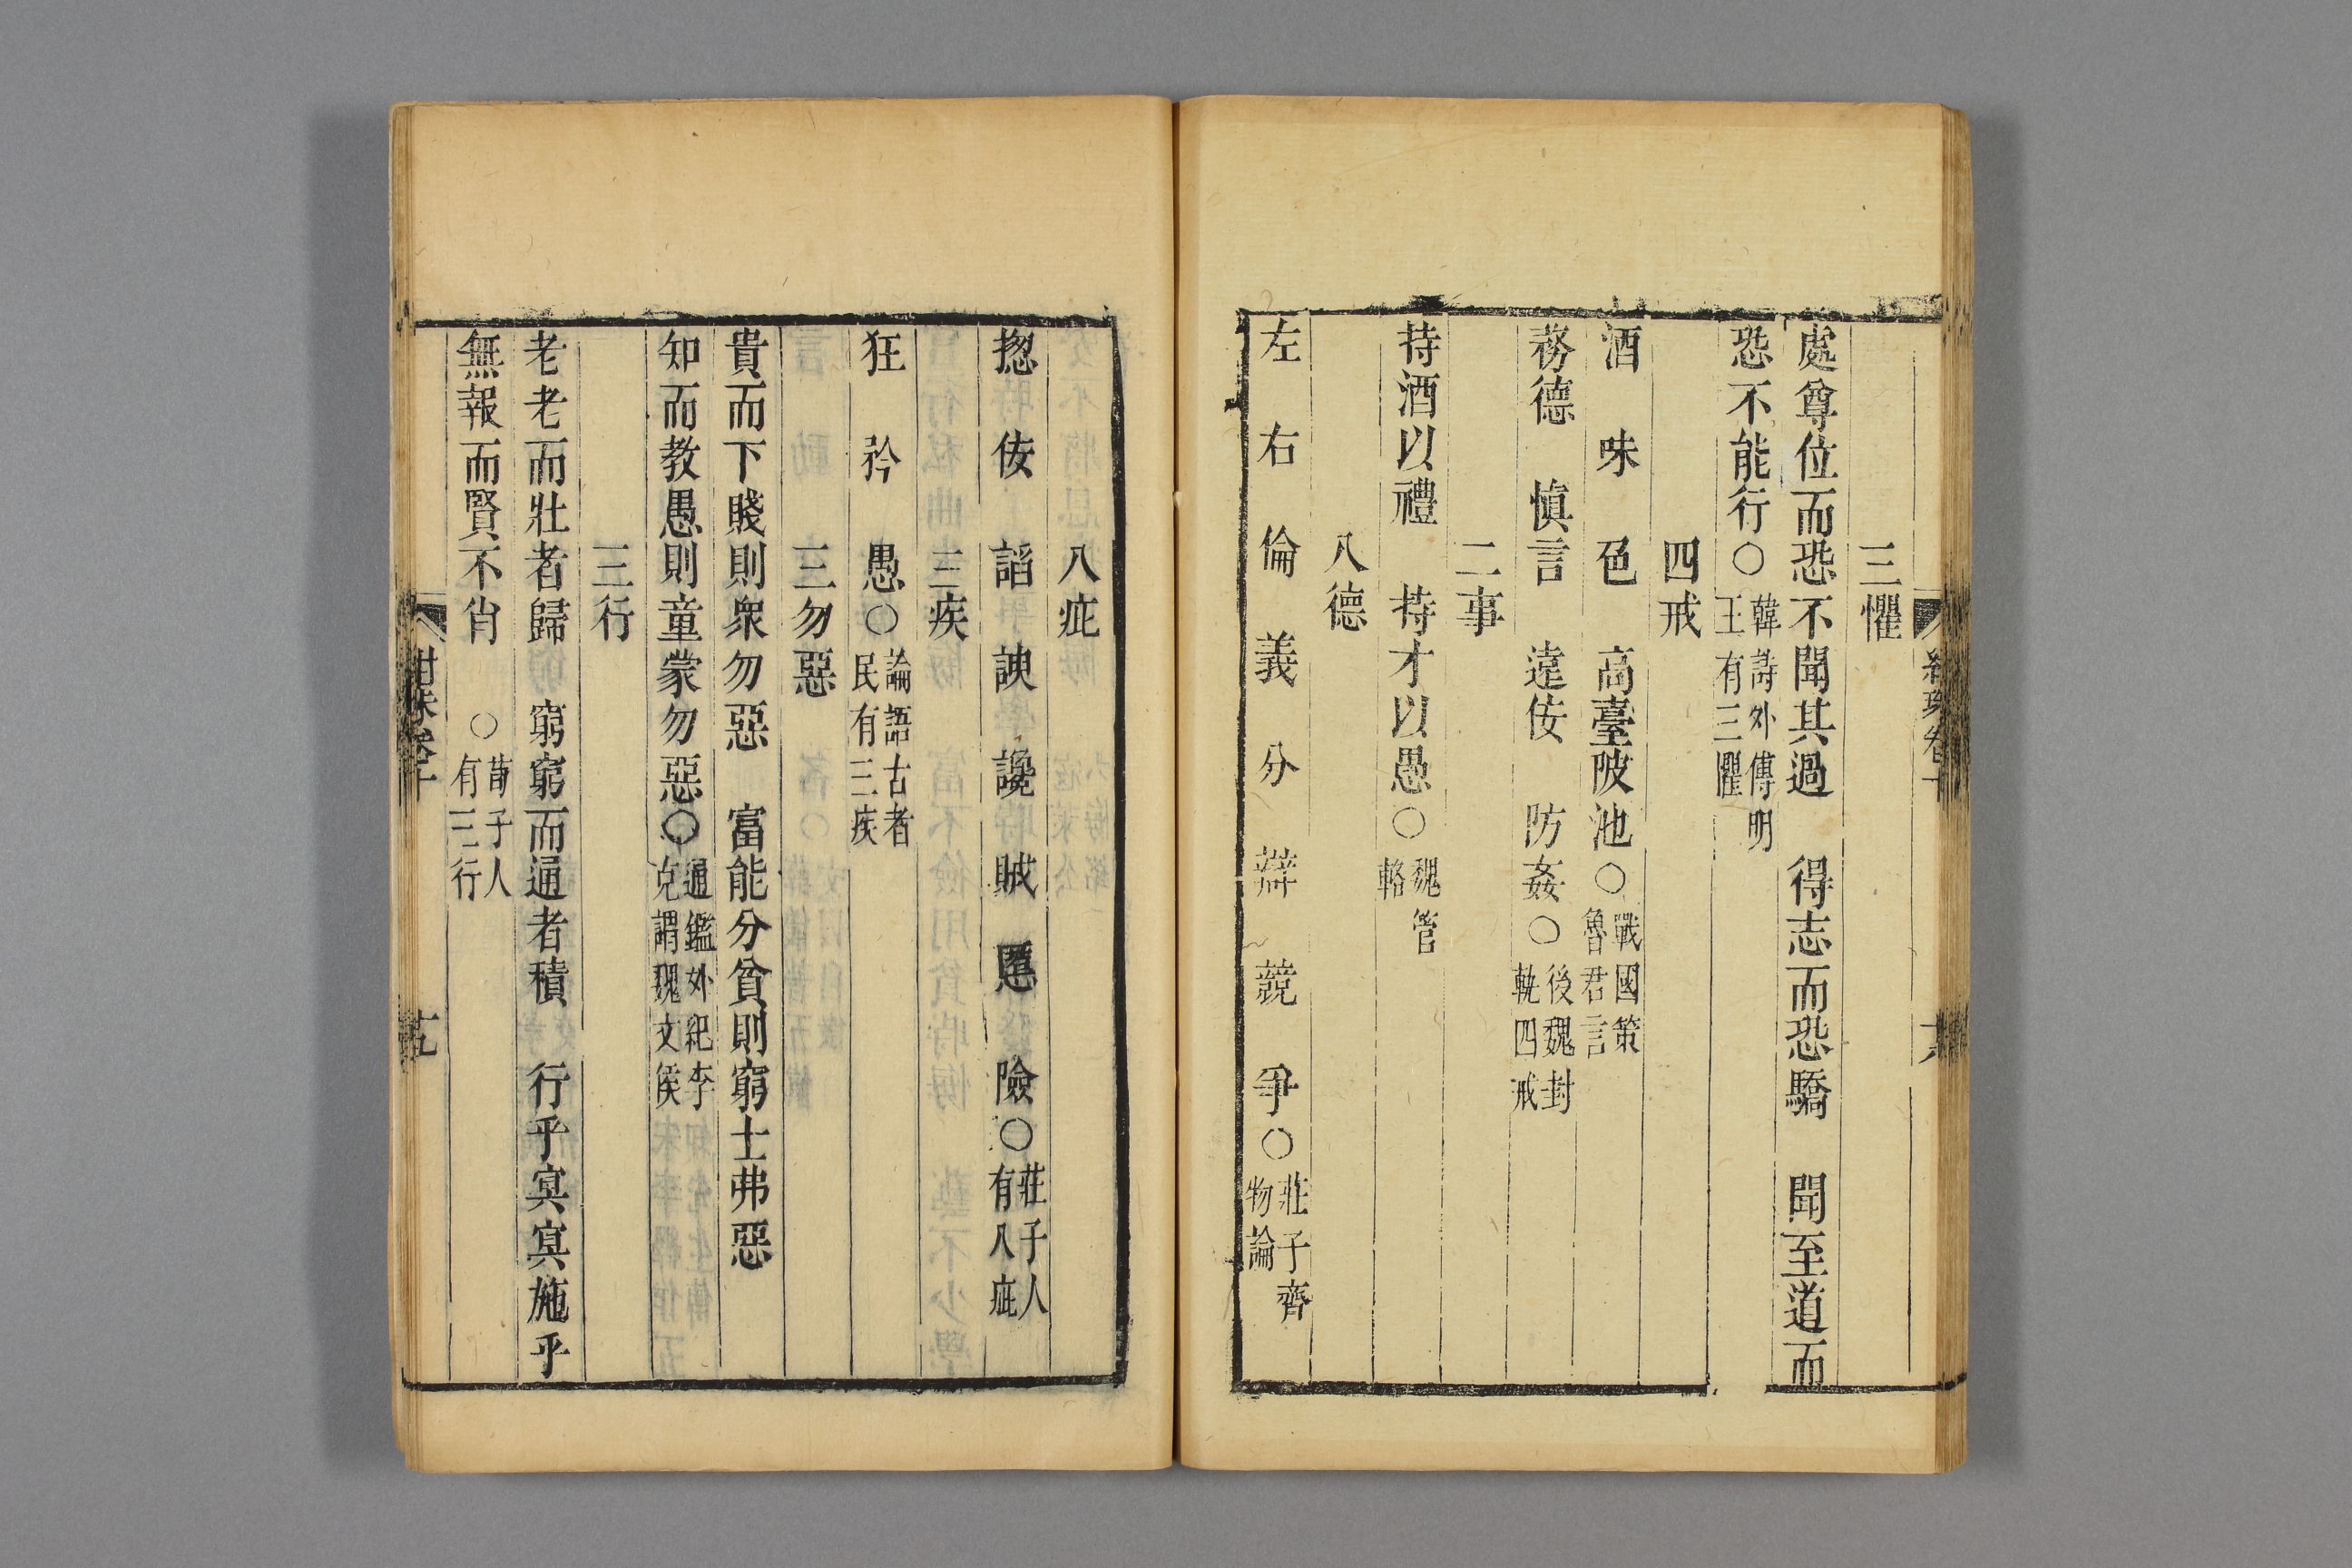 三懼
處尊位而恐不聞其過　得志而恐驕　聞至道而
恐不能行○韓詩外傳明王有三懼
四戒
酒　味　色　高臺陂池○戰國策魯君言
務德　愼言　遠佞　防姦○後魏封軌四戒
二事
持酒以禮　持才以愚○魏管輅
八德
左　右　倫　義　分　辯　競　爭○莊子齊物論
八疵
揔　佞　諂　諛　讒　賊　慝　險○莊子人有八疵
三疾
狂　矜　愚○論語古者民有三疾
三勿惡
貴而下賤則衆勿惡　富能分貧則窮士弗惡
知而教愚則童蒙勿惡○通鑑外紀李克謂魏文侯
三行
老老而壯者歸　窮窮而通者積　行乎冥冥施乎
無報而賢不肖　○荀子人有三行